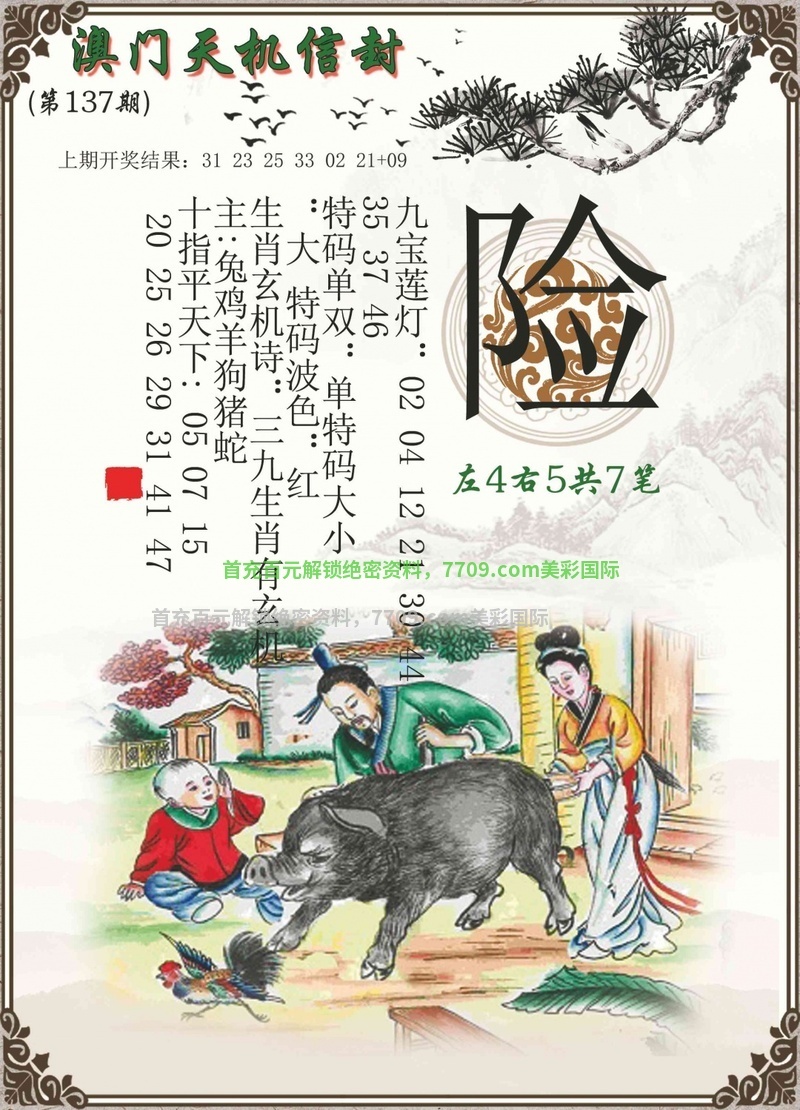 澳门天机信封
(第137期)
上期开奖结果：31 23 25 33 02 21+09
险
左4右5共7笔
九宝莲灯：02 04 12 21 30 44
35 37 46
特码单双：单特码大小
：大 特码波色：红
生肖玄机诗：三九生肖有玄机
主：兔鸡羊狗猪蛇
十指平天下：05 07 15
20 25 26 29 31 41 47
首充百元解锁绝密资料，7709.com美彩国际
首充百元解锁绝密资料，7709.com美彩国际